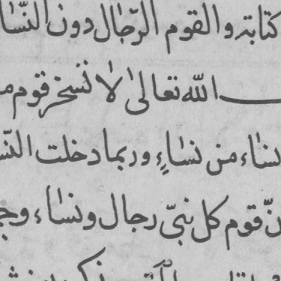 كتابته والقوم الرّجال دون النّسا
ـــ الله تعالى لا تسخر قوم م
نساء من نساءٍ وربما دخلت النّس
نّ قوم كل نبىّ رجال ونساء وجم